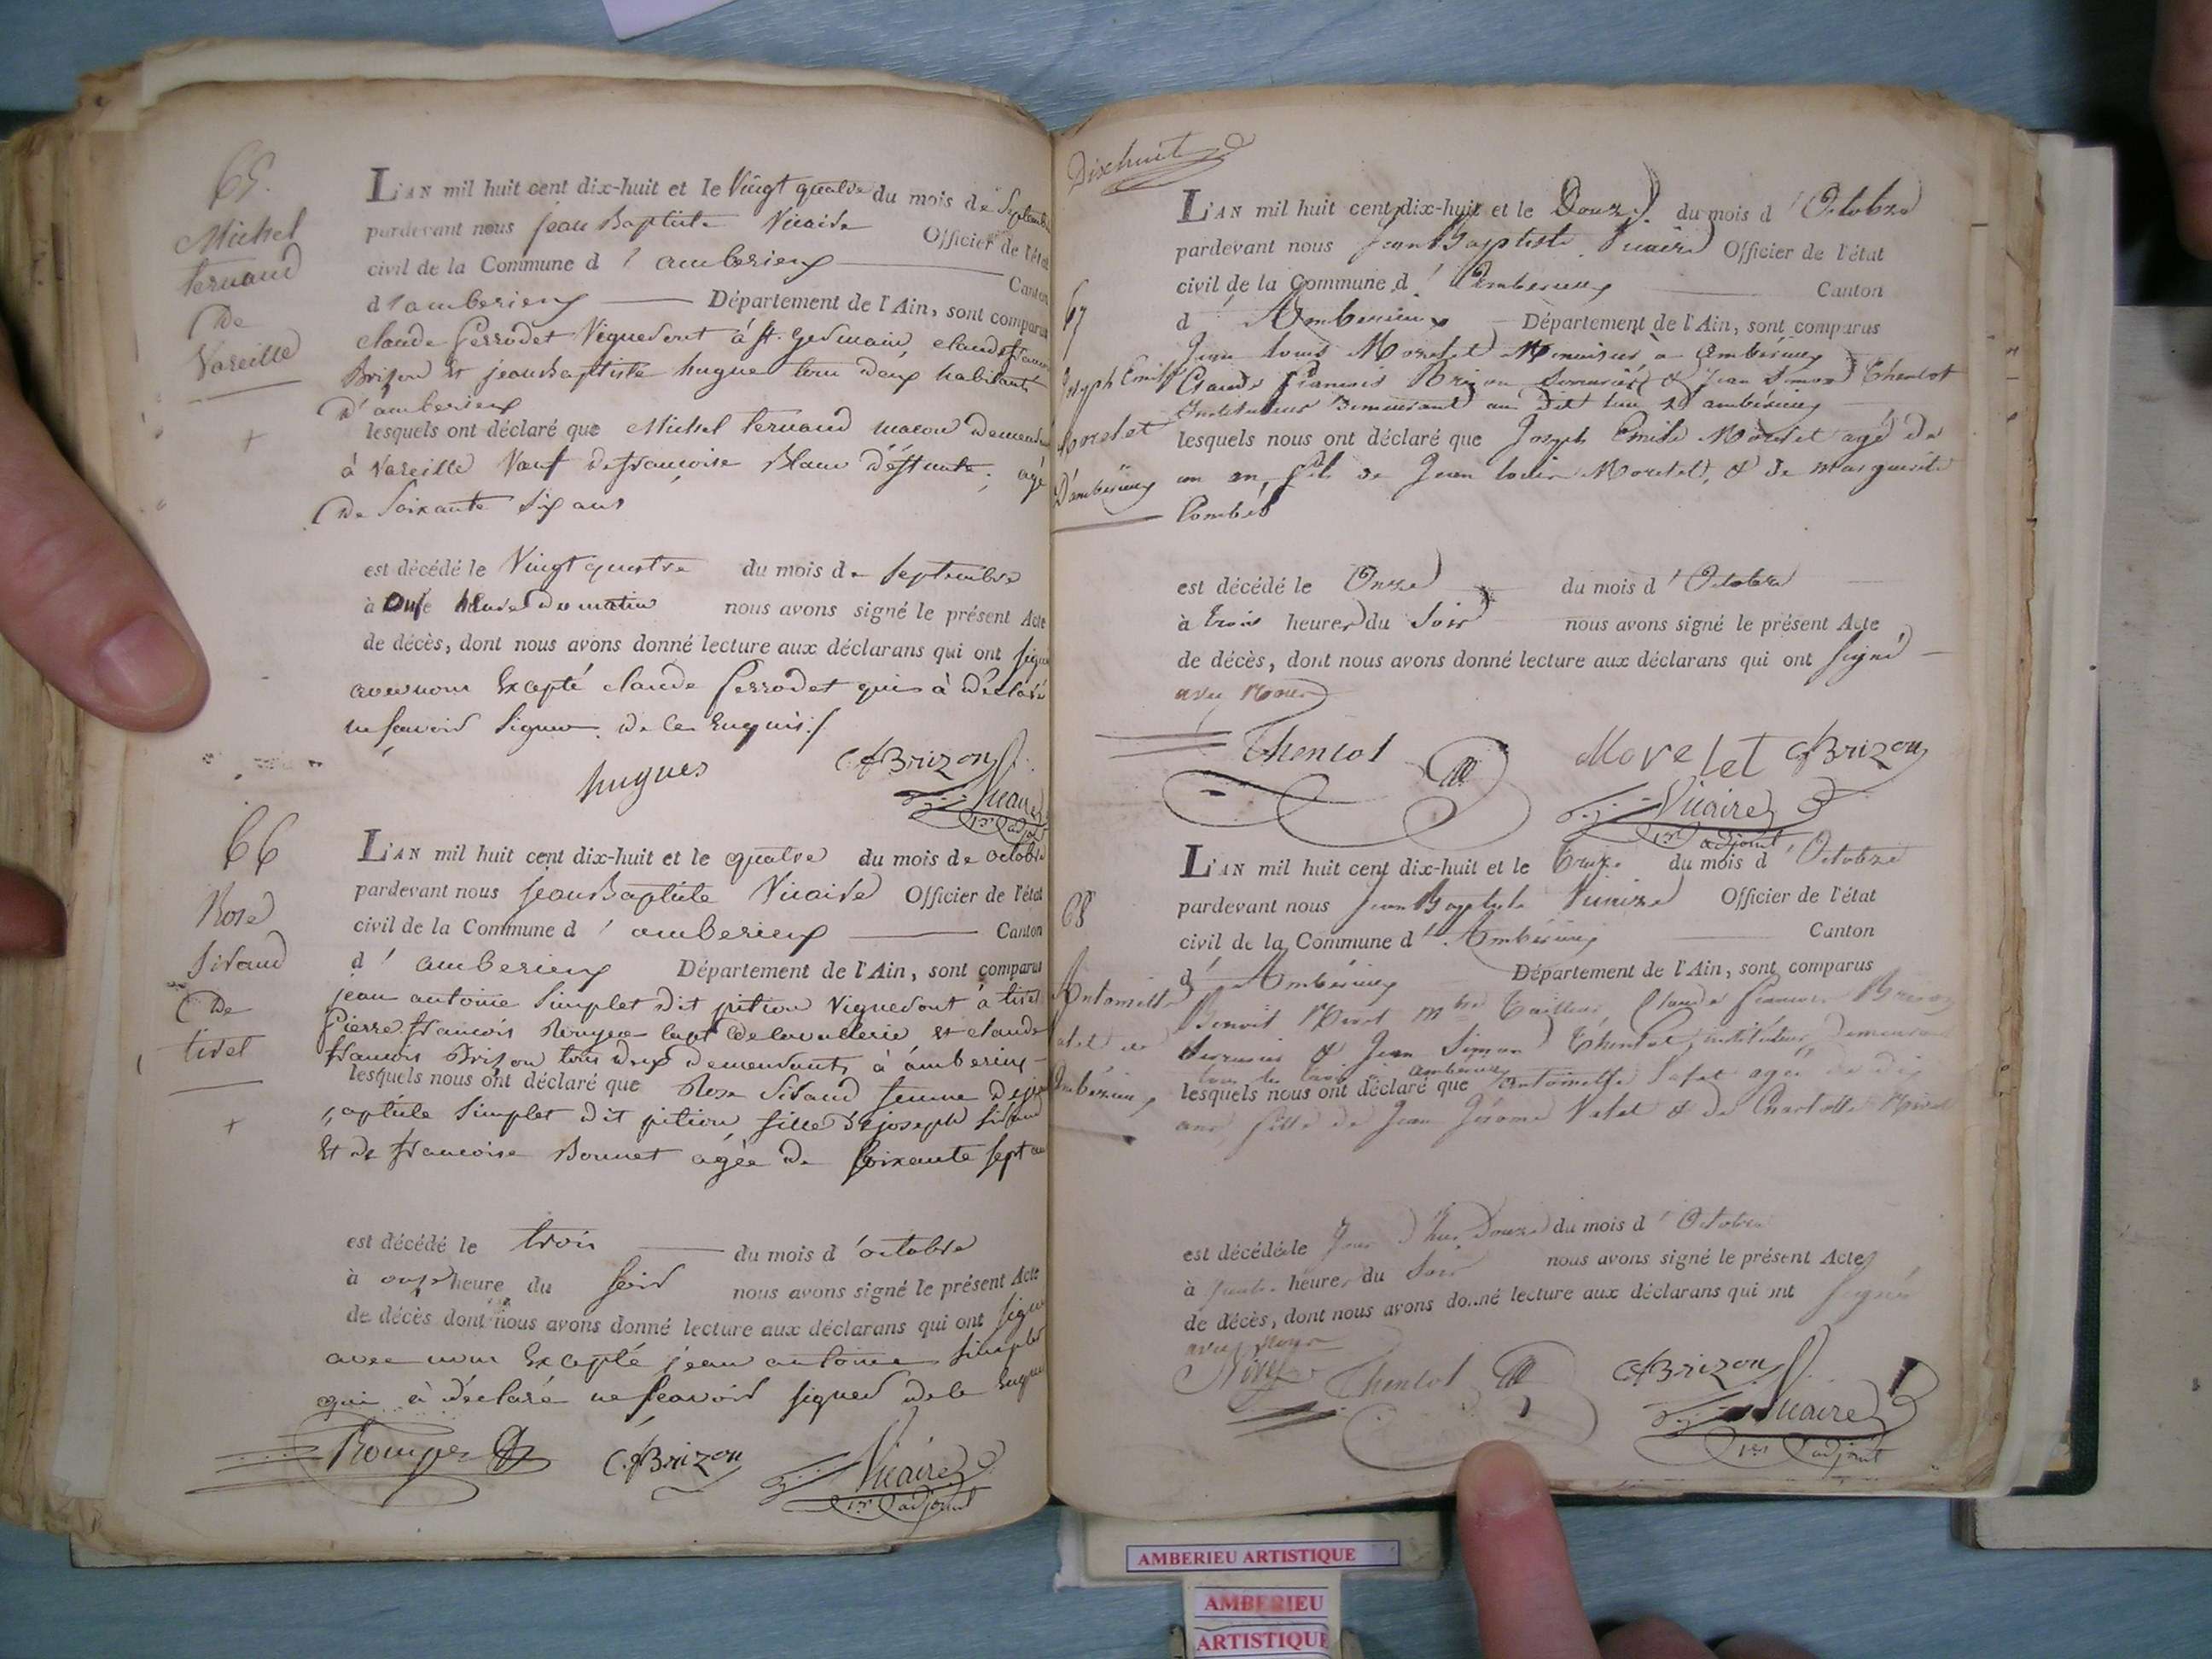 65.
Michel
ternand
De
Vareille
L'AN mil huit cent dix-huit et le Vingt quatre du mois de Septembre
pardevant nous jean Baptiste Vicaire Officier de l'état
civil de la Commune d'amberieux Canton
d'amberieux Département de l'Ain, sont comparus
claude Perrodet Vigneront à St. Germain, claude francois
Brison et jean Baptiste hugue tous deux habitants
D'amberieux
lesquels ont déclaré que Michel ternand macon demeurant
à Vareille Veuf de francoise Blanc déffunte, agé
De Soixante Six ans
est décédé le Vingt quatre du mois de Septembre
à onse heures du matin nous avons signé le présent Acte
de décès, dont nous avons donné lecture aux déclarans qui ont signé
avec nous Excepté claude Perrodet qui à déclaré
ne scavoir Signer de ce Enquis ./.
hugues CfBrizon
Vicaire
1er adjoint
66
Rose
Sivaud
De
tiret
L'AN mil huit cent dix-huit et le quatre du mois de octobre
pardevant nous jean Baptiste Vicaire Officier de l'état
civil de la Commune d'amberieux Canton
d'amberieux Département de l'Ain, sont comparus
jean antoine Simplet dit pition Vigneront à tiret
Pierre francois Rouyer capt de cavallerie et claude
francois Brison tous deux demeurants à amberieux
lesquels nous ont déclaré que Rose Sivaud femme de jean
baptiste Simplet dit pition, fille de joseph Sivaud
Et de francoise Bonnet agée de Soixante Sept ans
est décédé le trois du mois d'octobre
à onze heure du Soir nous avons signé le présent Acte
de décès dont nous avons donné lecture aux déclarans qui ont signé
avec nous Excepté jean antoine Simplet
qui à déclaré ne scavoir signer de ce Enquis
Rouyer C.fBrizon Vicaire
1er adjoint
Dixhuit
67
Joseph Emile
Morelet
D'ambérieux
L'AN mil huit cent dix-huit et le Douze du mois d'Octobre
pardevant nous Jean Baptiste Vicaire Officier de l'état
civil de la Commune d'Ambérieux Canton
d'Ambérieux Département de l'Ain, sont comparus
Jean Louis Morelet Menuisier à Ambérieux
Claude francois Brizon Serrurier & Jean Simon Thenlot
Instituteur Demeurant au dit lieu d'ambérieux
lesquels nous ont déclaré que Joseph Emile Morelet agé de
un an, fils de Jean Louis Morelet, & de Marguerite
Combet
est décédé le Onze du mois d'Octobre
à trois heures du Soir nous avons signé le présent Acte
de décès, dont nous avons donné lecture aux déclarans qui ont signé
avec Nous
Thenlot Morelet CfBrizon
Vicaire
1er adjoint
68
Antoinette
de
Ambérieux
L'AN mil huit cent dix-huit et le Treize du mois d'Octobre
pardevant nous Jean Baptiste Vicaire Officier de l'état
civil de la Commune d'Ambérieux Canton
d'Ambérieux Département de l'Ain, sont comparus
Benoit Mivet Tailleur, Claude francois Brizon
Serrurier & Jean Simon Thenlot, instituteur, Demeurant
tous les trois à ambérieux
lesquels nous ont déclaré que antoinette agée de dix
ans, fille de Jean Jérome & de Charlotte
est décédé le Jour d'hier Douze du mois d'Octobre
à heures du Soir nous avons signé le présent Acte
de décès, dont nous avons donné lecture aux déclarans qui ont signé
avec Nous
Thenlot CfBrizon
Vicaire
1er adjoint
AMBERIEU ARTISTIQUE
AMBERIEU
ARTISTIQUE